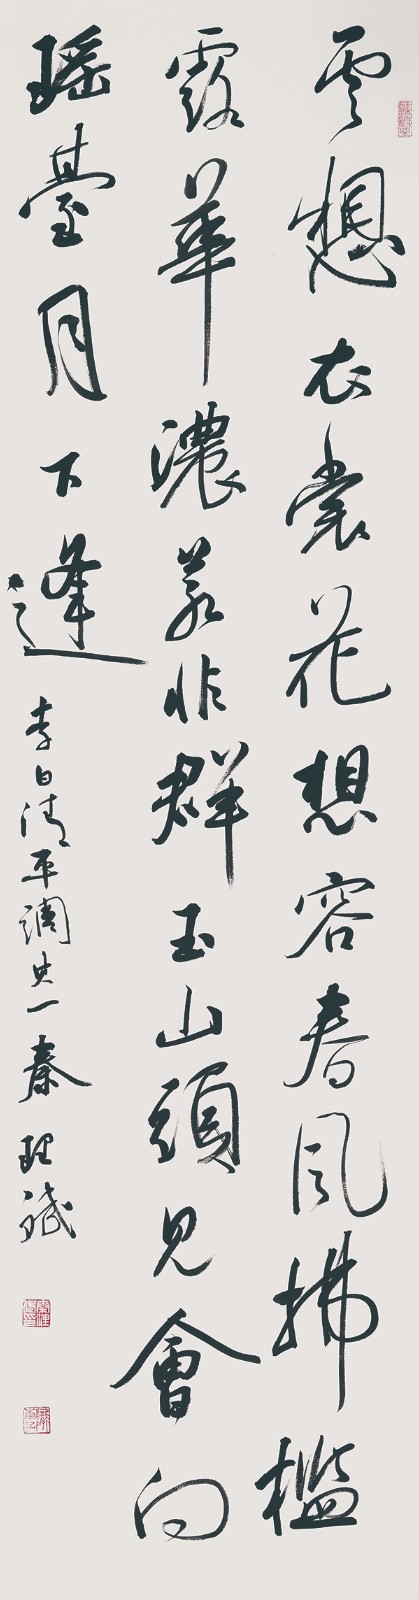 雲想衣裳花想容春風拂檻
露華濃若非群玉山頭見會向
瑶臺月下逢 李白清平調其一 秦理